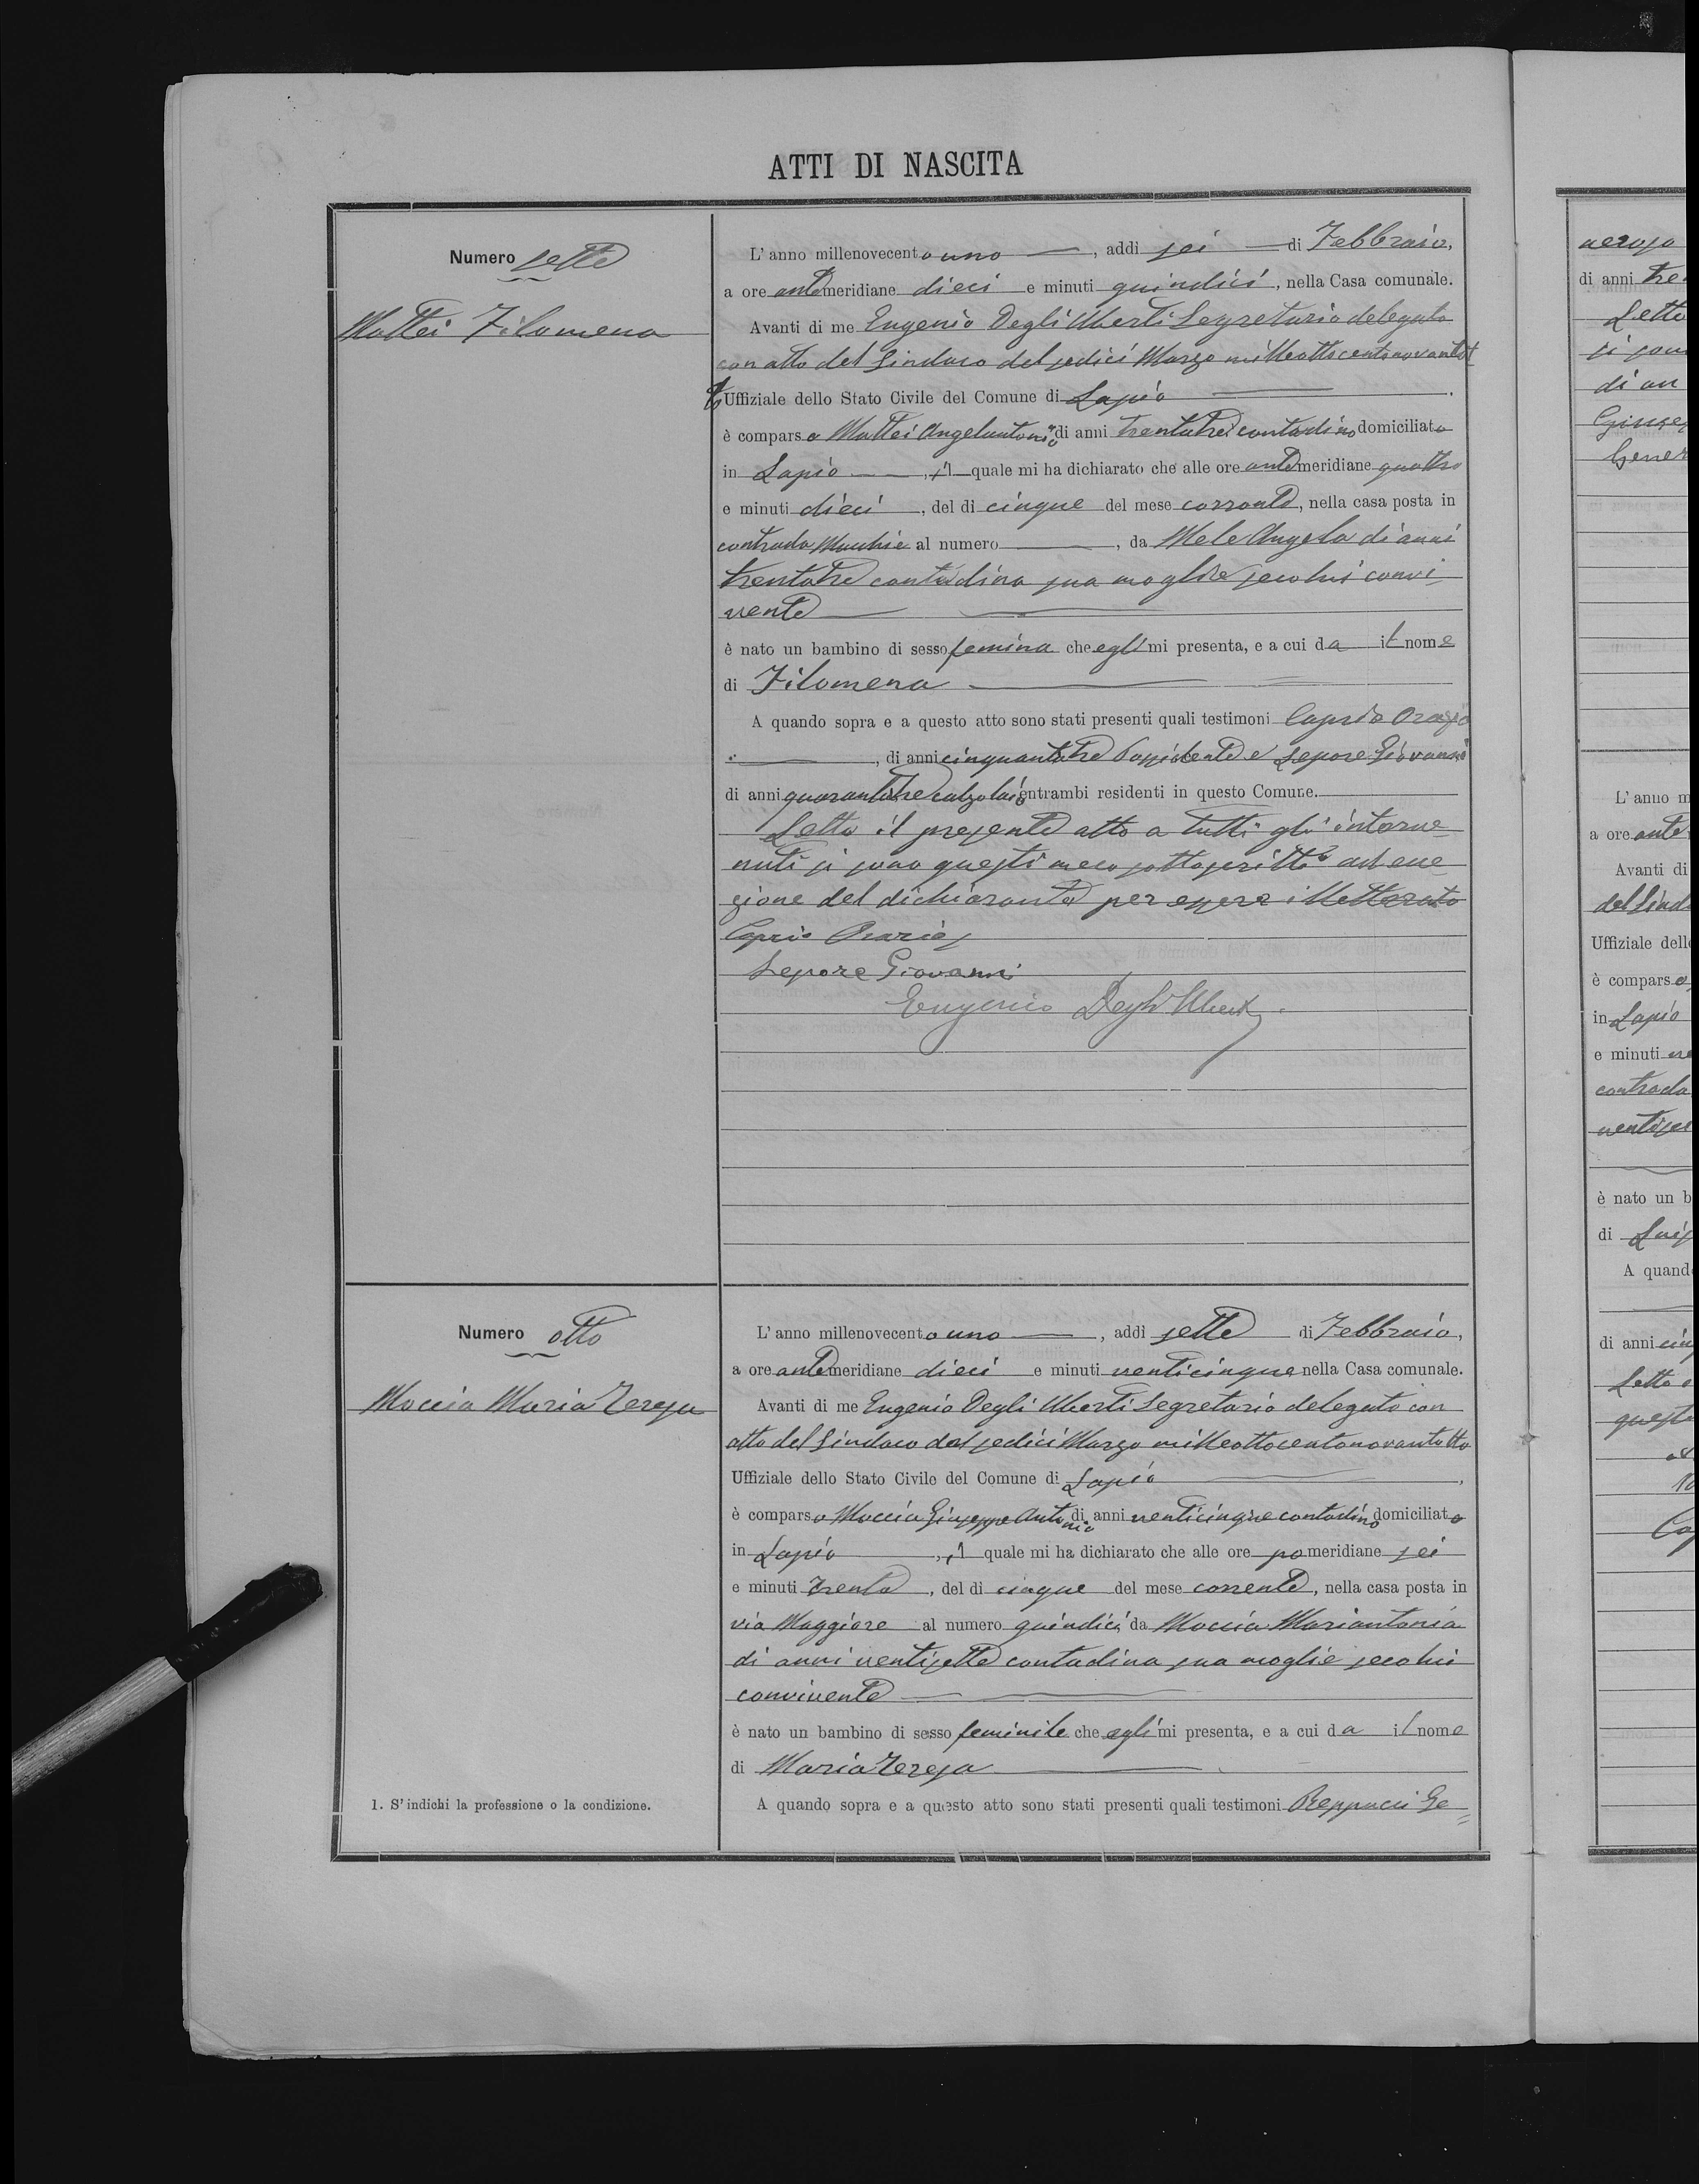 ATTI DI NASCITA
Numero sette
Mattei Filomena
L'anno millenovecento uno, addì sei di Febbraio,
a ore antemeridiane dieci e minuti quindici, nella Casa comunale.
Avanti di me Eugenio Degli Uberti Segretario delegato
con atto del Sindaco del sedici Marzo milleottocentonovantot
to Uffiziale dello Stato Civile del Comune di Lapio.
è comparso Mattei Angelantonio, di anni trentatre contadino domiciliato
in Lapio, il quale mi ha dichiarato che alle ore antemeridiane quattro
e minuti dieci, del dì cinque del mese corrente, nella casa posta in
contrada Macchie al numero, da Mele Angela di anni
trentatre contadina sua moglie secolui convi
vente
è nato un bambino di sesso femina che egli mi presenta, e a cui da il nome
di Filomena
A quando sopra e a questo atto sono stati presenti quali testimoni Caprio Orazio
, di anni cinquantatre Possidente e Lepore Giovanni
di anni quarantatre calzolaio entrambi residenti in questo Comune.
Letto il presente atto a tutti gli interve
nuti si sono questi meco sottoscritti ad ecce
zione del dichiarante per essere illetterato
Caprio Orazio
Lepore Giovanni
Eugenio Degli Uberti
Numero otto
Moccia Maria Teresa
L'anno millenovecento uno, addì sette di Febbraio,
a ore antemeridiane dieci e minuti venticinque nella Casa comunale.
Avanti di me Eugenio Degli Uberti Segretario delegato con
atto del Sindaco del sedici Marzo milleottocentonovantotto
Uffiziale dello Stato Civile del Comune di Lapio,
è comparso Moccia Giuseppe Antonio di anni venticinque contadino domiciliato
in Lapio, il quale mi ha dichiarato che alle ore pomeridiane sei
e minuti trenta, del dì cinque del mese corrente, nella casa posta in
via Maggiore al numero quindici, da Moccia Mariantonia
di anni ventisette contadina sua moglie secolui
convivente
è nato un bambino di sesso feminile che egli mi presenta, e a cui da il nome
di Maria Teresa
A quando sopra e a questo atto sono stati presenti quali testimoni Reppucci Ge=
1. S'indichi la professione o la condizione.
di anni tre
Letto
di an
L'anno m
a ore ante
Avanti di
del Sind
Uffiziale dell
è comparso
in Lapio
e minuti
contrada
ventisei
è nato un b
di Luig
A quand
di anni cin
Letto